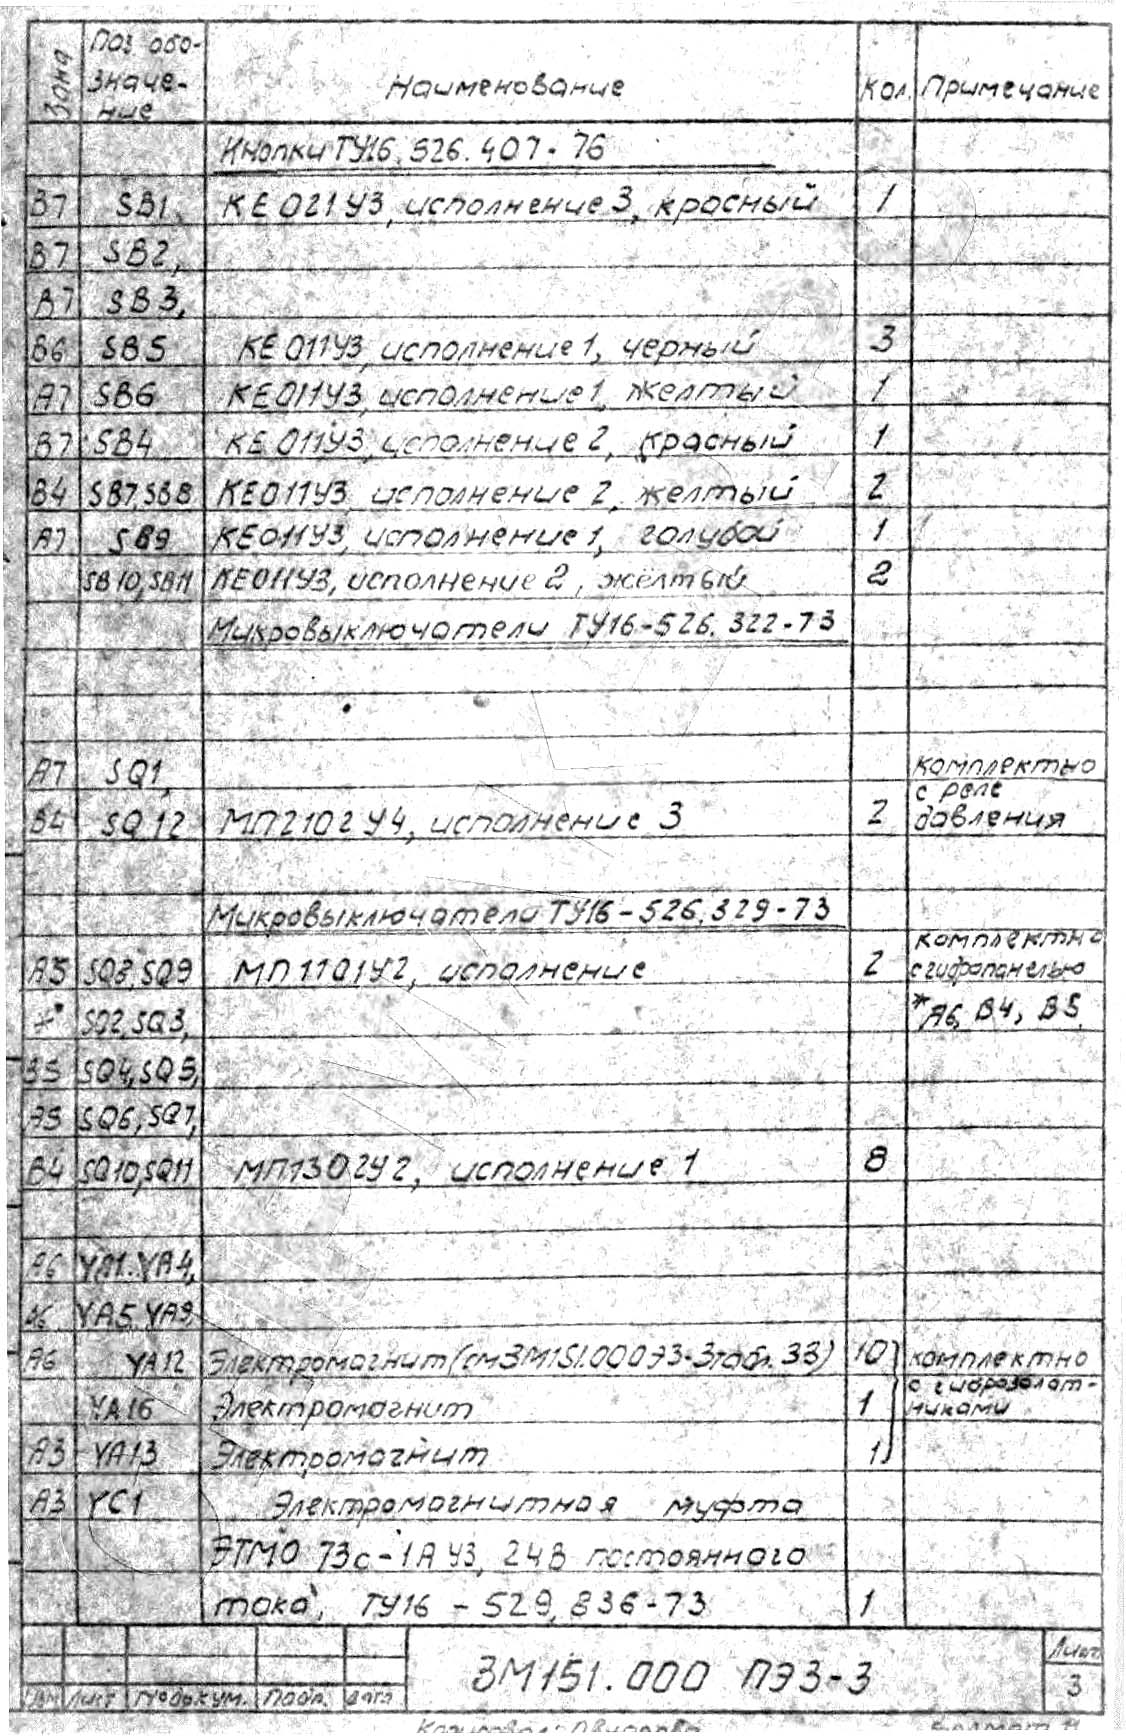 Зона Поз. обо- Наименование Кол. Примечание
значе-
ние
Кнопки ТУ16.526.407-76
В7 SB1, КЕ021У3, исполнение 3, красный 1
В7 SB2,
В7 SB3,
В6 SB5 КЕ011У3, исполнение 1, черный 3
А7 SB6 КЕ011У3, исполнение 1, желтый 1
В7 SB4 КЕ011У3, исполнение 2, красный 1
В4 SB7, SB8 КЕ011У3, исполнение 2, желтый 2
А7 SB9 КЕ011У3, исполнение 1, голубой 1
SB10, SB11 КЕ011У3, исполнение 2, жёлтый 2
Микровыключатели ТУ16-526.322-73
А7 SQ1, комплектно
с реле
В4 SQ12 МП2102У4, исполнение 3 2 давления
Микровыключатели ТУ16-526.329-73
комплектно
А5 SQ8, SQ9 МП1101У2, исполнение 2 с гидропанелью
* SQ2, SQ3, *А6, В4, В5
В5 SQ4, SQ5,
А5 SQ6, SQ7,
В4 SQ10, SQ11 МП1302У2, исполнение 1 8
А6 YA1. YA4,
А6 YA5, YA9,
А6 YA12 Электромагнит (см 3М151.000Э3-3 табл. 33) 10 комплектно
с гидрозолот-
YA16 Электромагнит 1 никами
А3 YA13 Электромагнит 1
А3 YC1 Электромагнитная муфта
ЭТМО 73с-1А У3, 24В постоянного
тока, ТУ16-529.836-73 1
Изм Лист № докум. Подп. Дата 3М151.000 ПЭ3-3 Лист 3
Копировал: